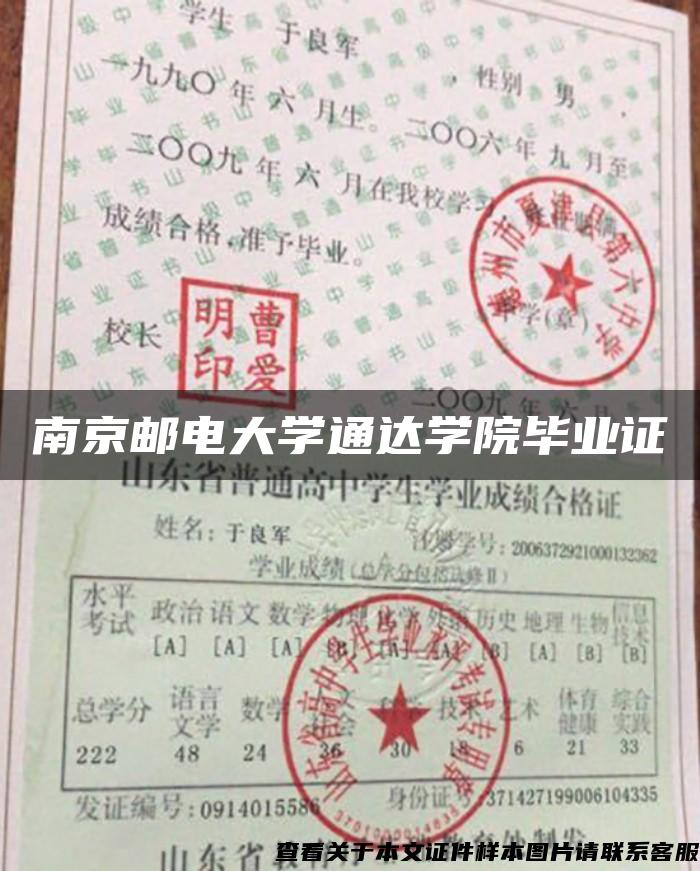 学生 于良军 ，性别 男
一九九〇 年 六 月生。二〇〇六 年 九 月至
二〇〇九 年 六 月在我校学习
成绩合格，准予毕业。
德州市夏津县第六中学
校长
曹爱
明印
学(章)
二〇〇九 年 六 月
南京邮电大学通达学院毕业证
山东省普通高中学生学业成绩合格证
姓名：于良军 注册学号：2006372921000132362
学业成绩(总学分包括选修Ⅱ)
水平考试 政治 语文 数学 物理 化学 外语 历史 地理 生物 信息技术
[A] [A] [A] [B] [A] [B] [A] [B] [B]
总学分 语言文学 数学 科学 技术 艺术 体育健康 综合实践
222 48 24 36 30 18 6 21 33
山东省高中学生学业水平考试专用章
发证编号：0914015586 身份证号：371427199006104335
山东省
查看关于本文证件样本图片请联系客服